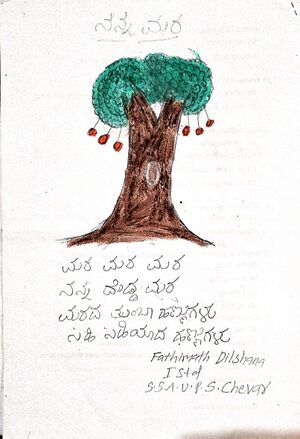 ನನ್ನ ಮರ
ಮರ ಮರ ಮರ
ನನ್ನ ದೊಡ್ಡ ಮರ
ಮರದ ತುಂಬಾ ಹಣ್ಣುಗಳು
ಸಿಹಿ ಸಿಹಿಯಾದ ಹಣ್ಣುಗಳು
Fathimath Dilshana
I Std
S.S.A.U.P.S. Chevar